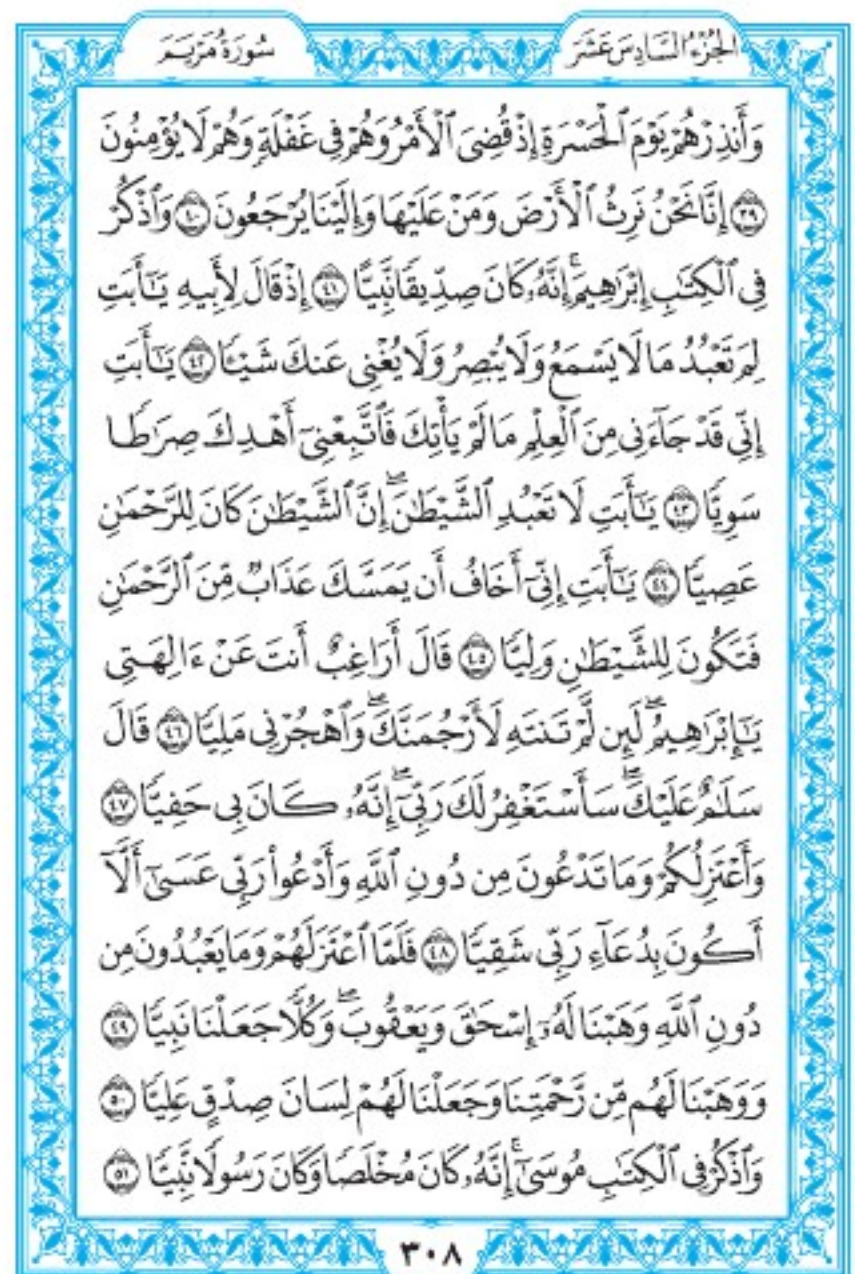 الجُزْءُ السَّادِسَ عَشَرَ
سُورَةُ مَرْيَمَ
وَأَنذِرْهُمْ يَوْمَ ٱلْحَسْرَةِ إِذْ قُضِىَ ٱلْأَمْرُ وَهُمْ فِى غَفْلَةٍ وَهُمْ لَا يُؤْمِنُونَ
﴿٣٩﴾ إِنَّا نَحْنُ نَرِثُ ٱلْأَرْضَ وَمَنْ عَلَيْهَا وَإِلَيْنَا يُرْجَعُونَ ﴿٤٠﴾ وَٱذْكُرْ
فِى ٱلْكِتَٰبِ إِبْرَٰهِيمَ ۚ إِنَّهُۥ كَانَ صِدِّيقًا نَّبِيًّا ﴿٤١﴾ إِذْ قَالَ لِأَبِيهِ يَٰٓأَبَتِ
لِمَ تَعْبُدُ مَا لَا يَسْمَعُ وَلَا يُبْصِرُ وَلَا يُغْنِى عَنكَ شَيْـًٔا ﴿٤٢﴾ يَٰٓأَبَتِ
إِنِّى قَدْ جَآءَنِى مِنَ ٱلْعِلْمِ مَا لَمْ يَأْتِكَ فَٱتَّبِعْنِىٓ أَهْدِكَ صِرَٰطًا
سَوِيًّا ﴿٤٣﴾ يَٰٓأَبَتِ لَا تَعْبُدِ ٱلشَّيْطَٰنَ ۖ إِنَّ ٱلشَّيْطَٰنَ كَانَ لِلرَّحْمَٰنِ
عَصِيًّا ﴿٤٤﴾ يَٰٓأَبَتِ إِنِّىٓ أَخَافُ أَن يَمَسَّكَ عَذَابٌ مِّنَ ٱلرَّحْمَٰنِ
فَتَكُونَ لِلشَّيْطَٰنِ وَلِيًّا ﴿٤٥﴾ قَالَ أَرَاغِبٌ أَنتَ عَنْ ءَالِهَتِى
يَٰٓإِبْرَٰهِيمُ ۖ لَئِن لَّمْ تَنتَهِ لَأَرْجُمَنَّكَ ۖ وَٱهْجُرْنِى مَلِيًّا ﴿٤٦﴾ قَالَ
سَلَٰمٌ عَلَيْكَ ۖ سَأَسْتَغْفِرُ لَكَ رَبِّىٓ ۖ إِنَّهُۥ كَانَ بِى حَفِيًّا ﴿٤٧﴾
وَأَعْتَزِلُكُمْ وَمَا تَدْعُونَ مِن دُونِ ٱللَّهِ وَأَدْعُوا۟ رَبِّى عَسَىٰٓ أَلَّآ
أَكُونَ بِدُعَآءِ رَبِّى شَقِيًّا ﴿٤٨﴾ فَلَمَّا ٱعْتَزَلَهُمْ وَمَا يَعْبُدُونَ مِن
دُونِ ٱللَّهِ وَهَبْنَا لَهُۥٓ إِسْحَٰقَ وَيَعْقُوبَ ۖ وَكُلًّا جَعَلْنَا نَبِيًّا ﴿٤٩﴾
وَوَهَبْنَا لَهُم مِّن رَّحْمَتِنَا وَجَعَلْنَا لَهُمْ لِسَانَ صِدْقٍ عَلِيًّا ﴿٥٠﴾
وَٱذْكُرْ فِى ٱلْكِتَٰبِ مُوسَىٰٓ ۚ إِنَّهُۥ كَانَ مُخْلَصًا وَكَانَ رَسُولًا نَّبِيًّا ﴿٥١﴾
٣٠٨